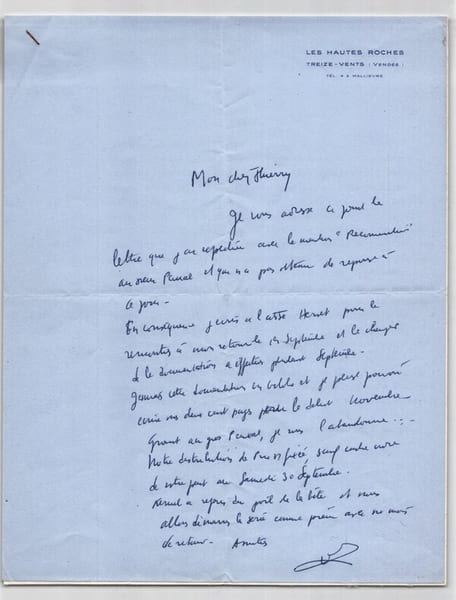 LES HAUTES ROCHES
TREIZE-VENTS (VENDÉE)
TÉL. 4 à MALLIEVRE
Mon cher Thierry
Je vous adresse ci joint la
lettre que j'ai expédiée avec la mention "Recommandée"
au sieur Pascal et qui n'a pas obtenu de réponse à
ce jour -
En conséquence j'écris à l'abbé pour le
rencontrer à mon retour en Septembre et le charger
de la documentation à effectuer pendant Septembre.
cette documentation en Octobre et je pense pouvoir
écrire nos deux cent pages pour le début Novembre
Quant au gros Pascal, je vous l'abandonne...
Notre distribution de Prix fixée, sauf contre
de votre part au Samedi 30 Septembre.
a repris du poil de la bête et nous
allons démarrer la série comme prévu avec un mois
de retard - Amitiés